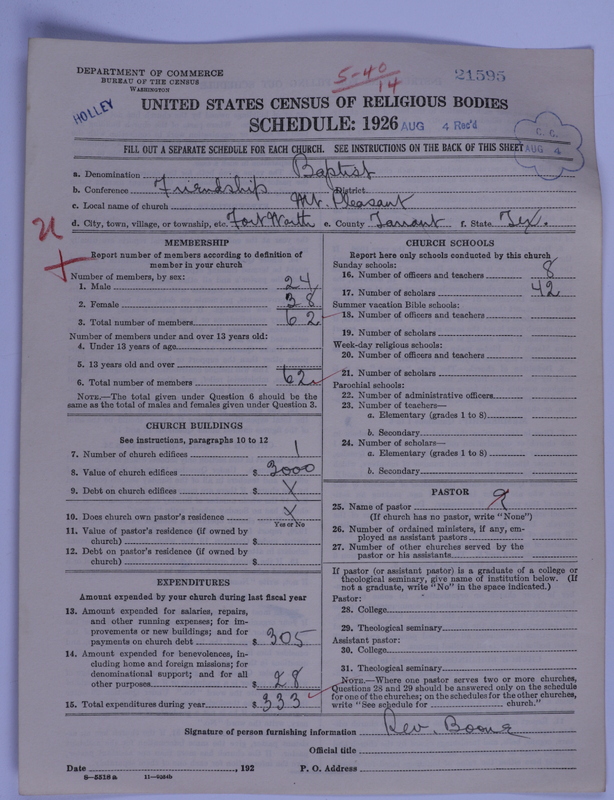 DEPARTMENT OF COMMERCE
BUREAU OF THE CENSUS
WASHINGTON
HOLLEY
5-40
14
21595
UNITED STATES CENSUS OF RELIGIOUS BODIES
SCHEDULE: 1926
AUG 4 Rec'd
C. C.
AUG 4
FILL OUT A SEPARATE SCHEDULE FOR EACH CHURCH. SEE INSTRUCTIONS ON THE BACK OF THIS SHEET
a. Denomination Baptist
b. Conference Friendship District
c. Local name of church Mt. Pleasant
d. City, town, village, or township, etc. Fort Worth e. County Tarrant f. State Tex.
MEMBERSHIP
Report number of members according to definition of
member in your church
Number of members, by sex:
1. Male 24
2. Female 38
3. Total number of members 62
Number of members under and over 13 years old:
4. Under 13 years of age
5. 13 years old and over
6. Total number of members 62
NOTE.—The total given under Question 6 should be the
same as the total of males and females given under Question 3.
CHURCH BUILDINGS
See instructions, paragraphs 10 to 12
7. Number of church edifices 1
8. Value of church edifices $ 3000
9. Debt on church edifices $ X
10. Does church own pastor's residence X
Yes or No
11. Value of pastor's residence (if owned by
church) $
12. Debt on pastor's residence (if owned by
church) $
EXPENDITURES
Amount expended by your church during last fiscal year
13. Amount expended for salaries, repairs,
and other running expenses; for im-
provements or new buildings; and for
payments on church debt $ 305
14. Amount expended for benevolences, in-
cluding home and foreign missions; for
denominational support; and for all
other purposes $ 28
15. Total expenditures during year $ 333
CHURCH SCHOOLS
Report here only schools conducted by this church
Sunday schools:
16. Number of officers and teachers 8
17. Number of scholars 42
Summer vacation Bible schools:
18. Number of officers and teachers
19. Number of scholars
Week-day religious schools:
20. Number of officers and teachers
21. Number of scholars
Parochial schools:
22. Number of administrative officers
23. Number of teachers—
a. Elementary (grades 1 to 8)
b. Secondary
24. Number of scholars—
a. Elementary (grades 1 to 8)
b. Secondary
PASTOR
25. Name of pastor
(If church has no pastor, write "None")
26. Number of ordained ministers, if any, em-
ployed as assistant pastors
27. Number of other churches served by the
pastor or his assistants
If pastor (or assistant pastor) is a graduate of a college or
theological seminary, give name of institution below. (If
not a graduate, write "No" in the space indicated.)
Pastor:
28. College
29. Theological seminary
Assistant pastor:
30. College
31. Theological seminary
NOTE.—Where one pastor serves two or more churches,
Questions 28 and 29 should be answered only on the schedule
for one of the churches; on the schedules for the other churches,
write "See schedule for church."
Signature of person furnishing information Rev. Boone
Official title
Date , 192 P. O. Address
8-5518a 11-9264b